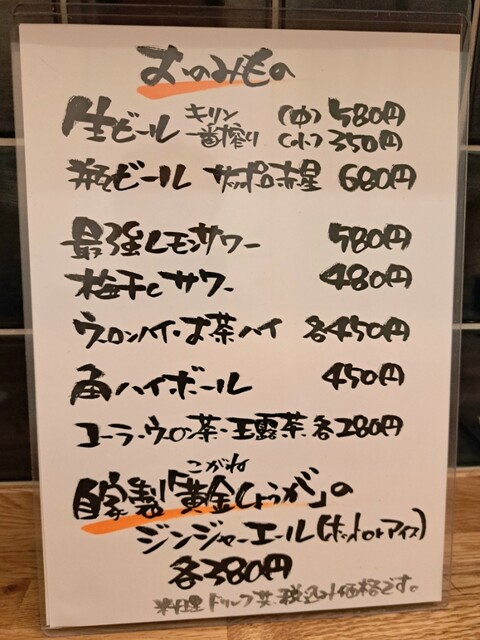 おのみもの
生ビール キリン一番搾り (中) 580円
(小) 350円
瓶ビール サッポロ赤星 680円
最強レモンサワー 580円
梅干しサワー 480円
ウーロンハイ・お茶ハイ 各450円
角ハイボール 450円
コーラ・ウーロン茶・玉露茶 各280円
こがね
自家製「黄金しょうが」の
ジンジャーエール(ホットorアイス)
各380円
料理 ドリンク共 税込み価格です。